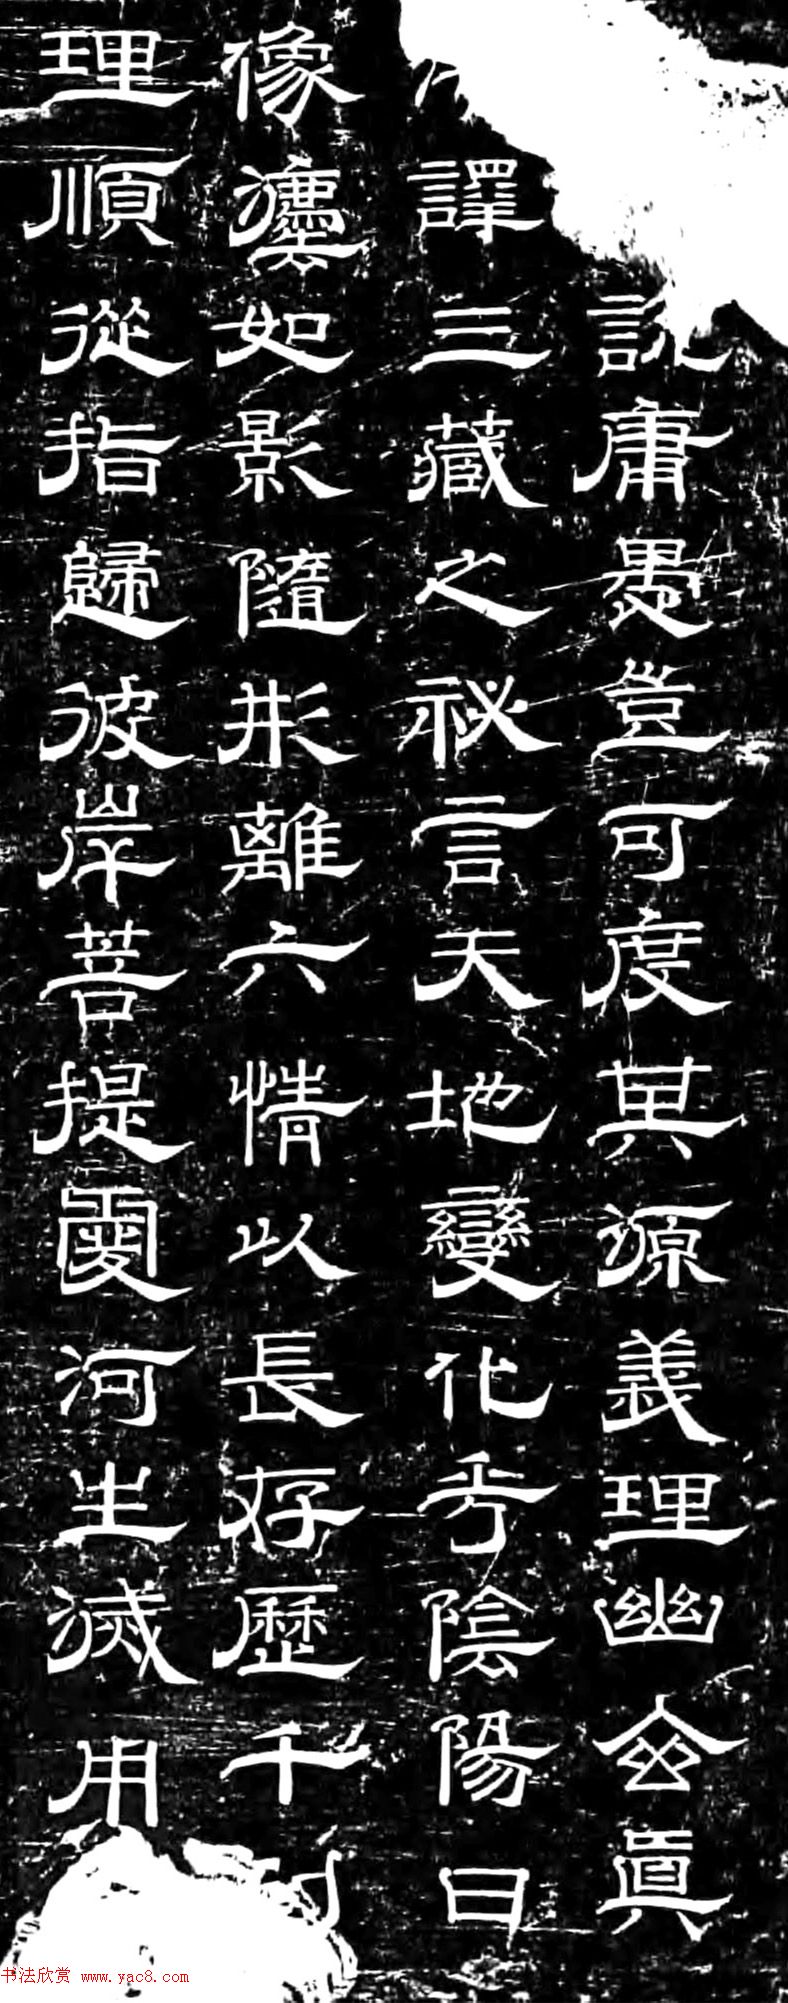 說庸愚豈可度其源義理幽玄真
譯三藏之祕言天地變化乎陰陽日
像瀍如影隨形離六情以長存歷千
理順從指歸彼岸菩提愛河生滅用
书法欣赏 www.yac8.com